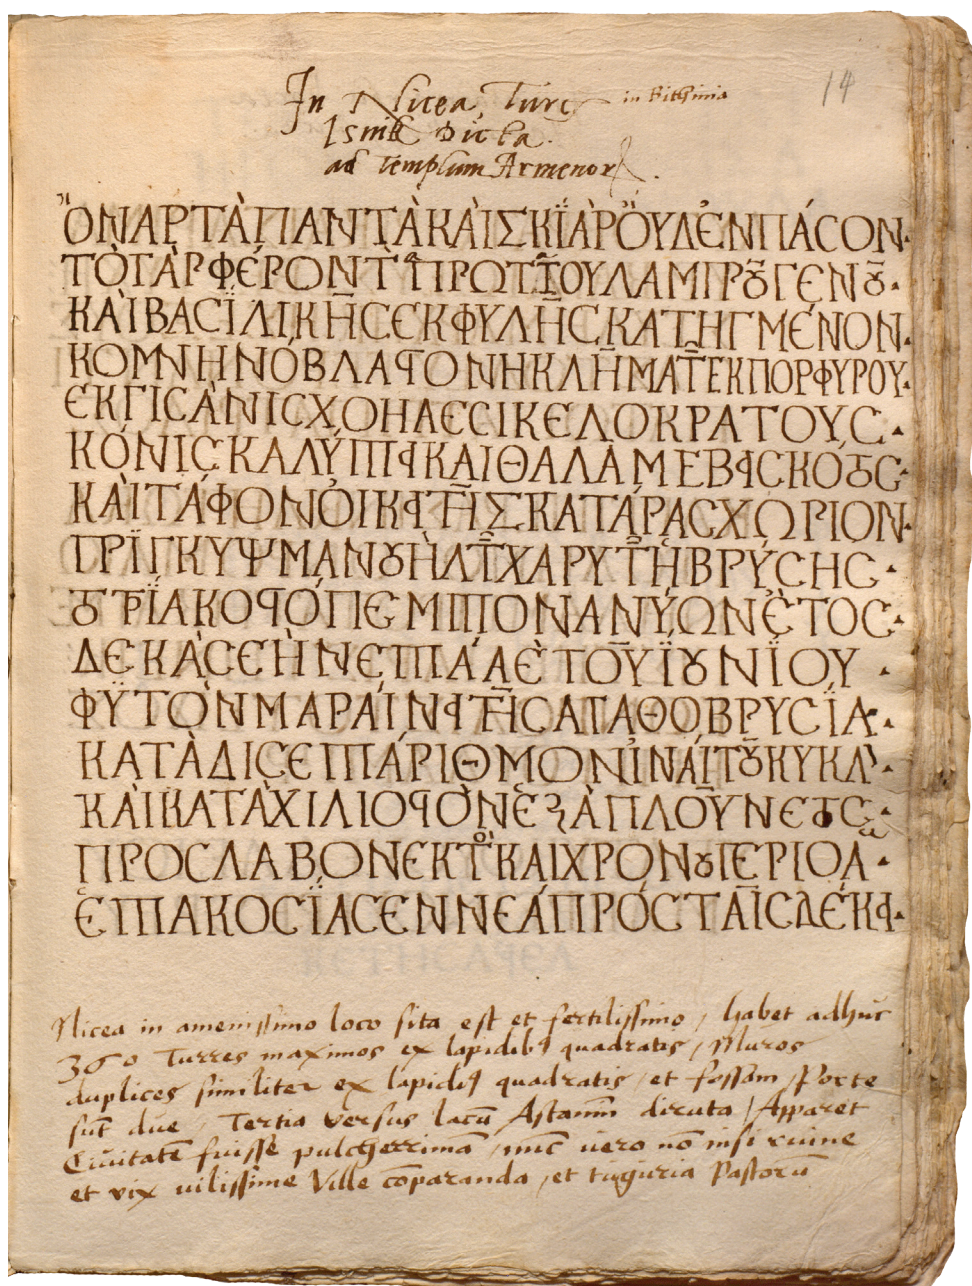 In Nicea, Turc in Bithinia
14
Isnik dicta.
ad Templum Armenor
ὌΝΑΡΤᾺΠΑΝΤᾺΚΑῚΣΚΪᾺΡὌΥΔἘΝΠΆϹΟΝ
ΤῸΓᾺΡΦΈΡΟΝΤ ΠΡΩΤ ΟΥΛΑΜΠΡȣ͂ΓΕΝȣ͂
ΚΑῚΒΑϹΪΛΙΚΗ͂ϹΕΚΦΥΛΗ͂ϹΚΑΤΗΓΜΈΝΟΝ
ΚΟΜΝΗΝΌΒΛΑϤΟΝΗΚΛΗ͂ΜΑΤ ΕΚΠΟΡΦΥΡΟΥ
ΕΚΓΙϹᾺΝΙϹΧΟΗΛΕϹΙΚΕΛΟΚΡΑΤΟΥϹ
ΚΌΝΙϹΚΑΛΎΠΤϤΚΑΙΘΑΛΆΜΕΒϤϹΚΌȣϹ
ΚΑῚΤΆΦΟΝὈΙΚϤΤΗ͂ΣΚΑΤΆΡΑϹΧΩΡΙΟΝ
ΤΡΪΓΚΥΨΜΑΝȣῊΛΤ ΧΑΡΥΤΗ͂ΒΡΎϹΗϹ
ȣ ΤΡΪΆΚΟϤΌΠΕΜΠΤΟΝΑΝΎΩΝἜΤΟϹ
ΔΕΚᾺϹΕῊΝΕΠΤΆΑἘΤΟΥ͂ΪȣΝΪΟΥ
ΦΫΤῸΝΜΑΡΑΊΝϤΤΗ͂ϹΑΤΑΘΟΒΡΥϹΪΑ
ΚΑΤᾺΔΙϹΕΠΤΆΡΙΘΜΟΝἸΝΆΙΤȣ͂ΚΥΚΛ
ΚΑῚΚΑΤΆΧΙΛΙΟϤῸΝΕ ΆΠΛΟΥ͂ΝΕȣϹ
ΠΡΟϹΛΑΒΟΝΕΚΤ ΚΑΙΧΡΟΝȣΠΕΡΙΟΔ
ἙΠΤΑΚΟϹΪΑϹΕΝΝΕΆΠΡΌϹΤΑΙ͂ϹΔΈΚϤ
Nicea in amenissimo loco sita est et fertilissimo, habet adhuc
360 Turres maximos ex lapidibus quadratis, Muros
duplices similiter ex lapidibus quadratis, et fossam, Porte
sūt due, Tertia versus lacū Astanim diruta, Apparet
Civitatē fuisse pulcherrimā, nūc vero nō nisi ruine
et vix vilissime Ville cōparanda, et tuguria Pastorū